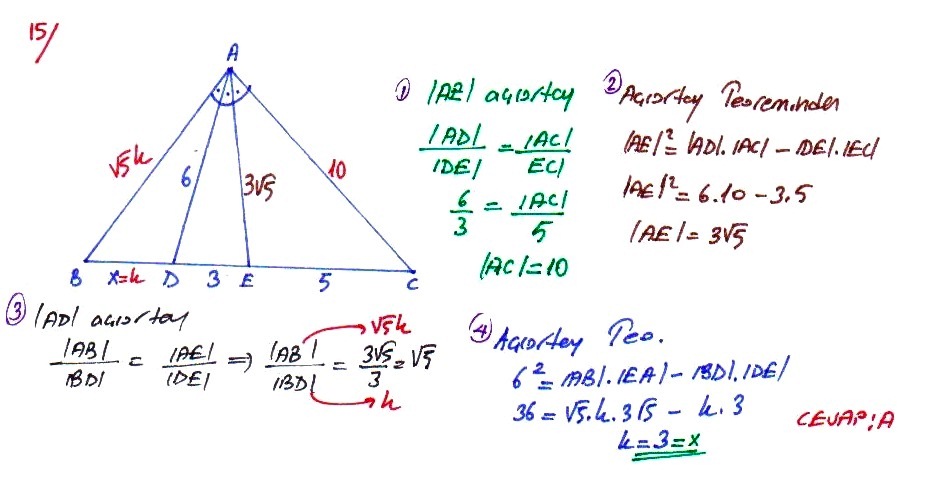 15/
A
√5k
6
3√5
10
B x=k D 3 E 5 C
① |AE| açıortay
|AD|/|DE| = |AC|/|EC|
6/3 = |AC|/5
|AC|=10
② Açıortay Teoreminden
|AE|² = |AD|.|AC| - |DE|.|EC|
|AE|² = 6.10 - 3.5
|AE| = 3√5
③ |AD| açıortay
|AB|/|BD| = |AE|/|DE| ⇒ |AB|/|BD| = 3√5/3 = √5
√5k
k
④ Açıortay Teo.
6² = |AB|.|EA| - |BD|.|DE|
36 = √5.k.3√5 - k.3
k=3=x
CEVAP: A